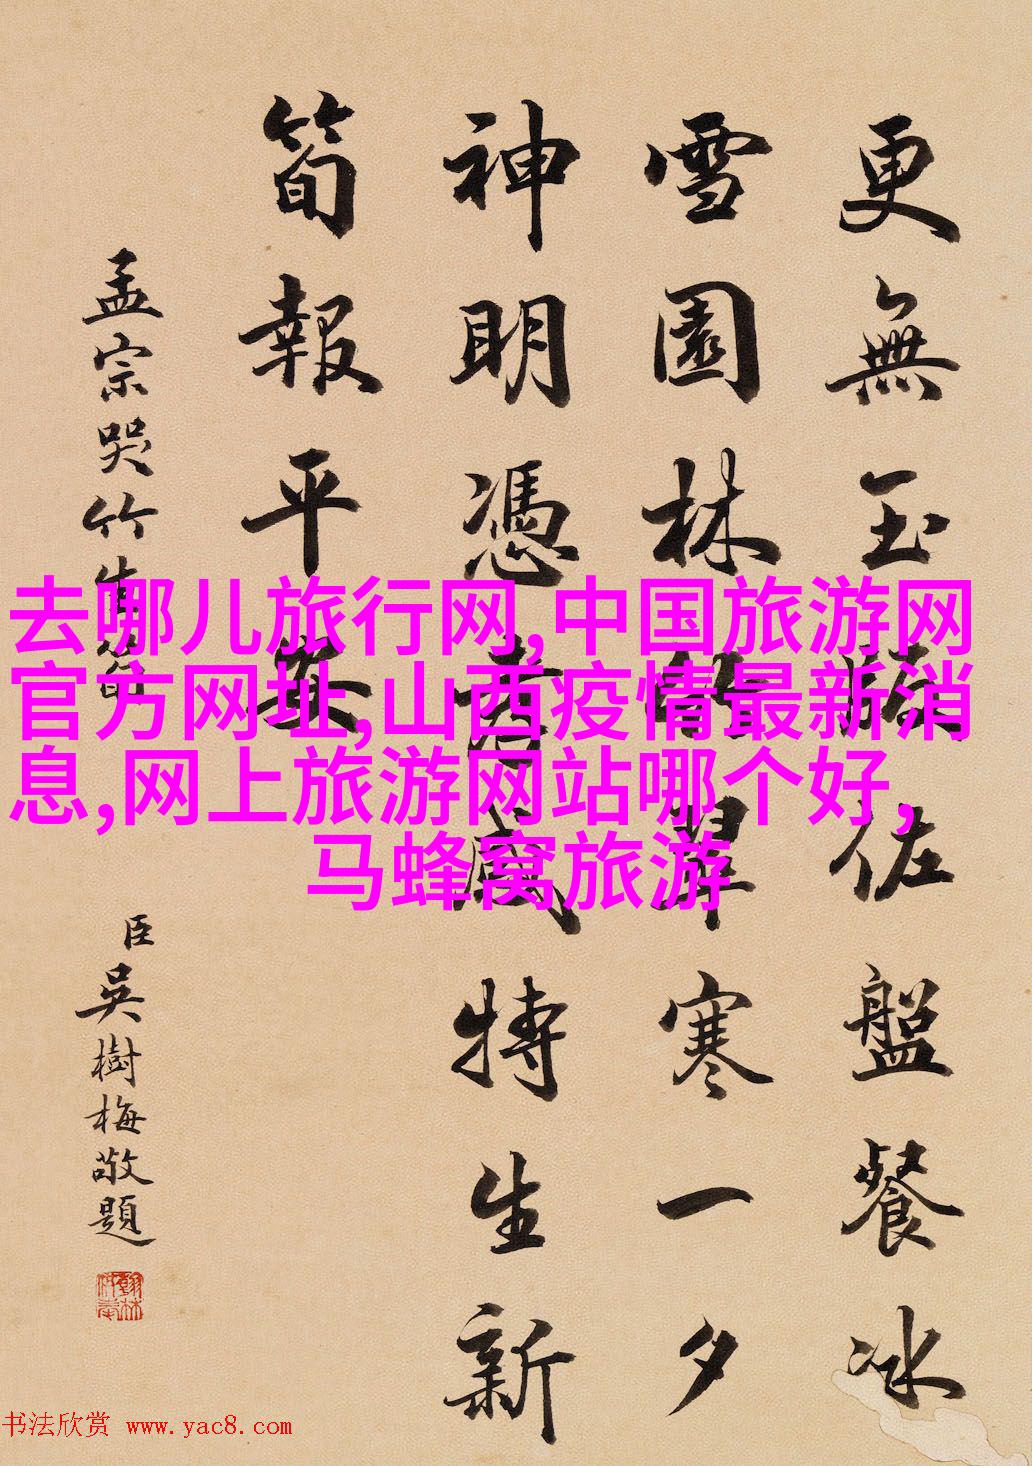 更無玉佐盤餐冰
雪園林翠寒一夕
神明憑孝感特生新
筍報平安
孟宗哭竹生筍
臣吳樹梅敬題
去哪儿旅行网,中国旅游网
官方网址,山西疫情最新消
息,网上旅游网站哪个好,
马蜂窝旅游
书法欣赏 www.yac8.com